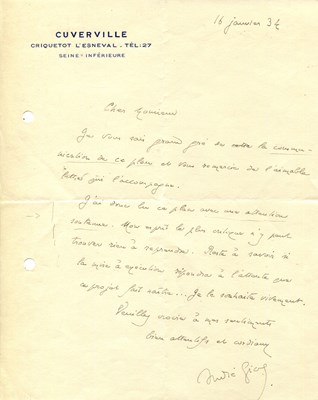 CUVERVILLE
CRIQUETOT L'ESNEVAL . TÉL: 27
SEINE-INFÉRIEURE
16 janvier 34
Cher Monsieur
Je vous sais grand gré de cette commu-
nication de ce plan et vous remercie de l'aimable
lettre qui l'accompagne.
J'ai donc lu ce plan avec une attention
soutenue. Mon esprit le plus critique n'y peut
trouver rien à reprendre. Reste à savoir si
la mise à exécution répondra à l'attente que
ce projet fait naître... Je le souhaite vivement.
Veuillez croire à mes sentiments
bien attentifs et cordiaux
André Gide